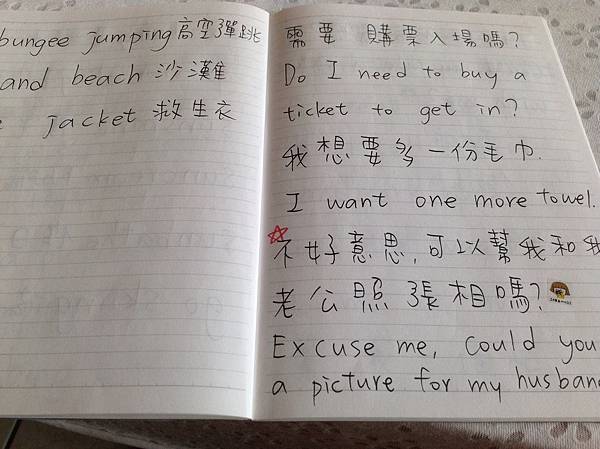 bungee jumping高空彈跳
and beach 沙灘
jacket 救生衣
需要 購票入場嗎?
Do I need to buy a
ticket to get in?
我想要多一份毛巾.
I want one more towel.
不好意思,可以幫我和我
老公照張相嗎?
Excuse me, could you
a picture for my husban